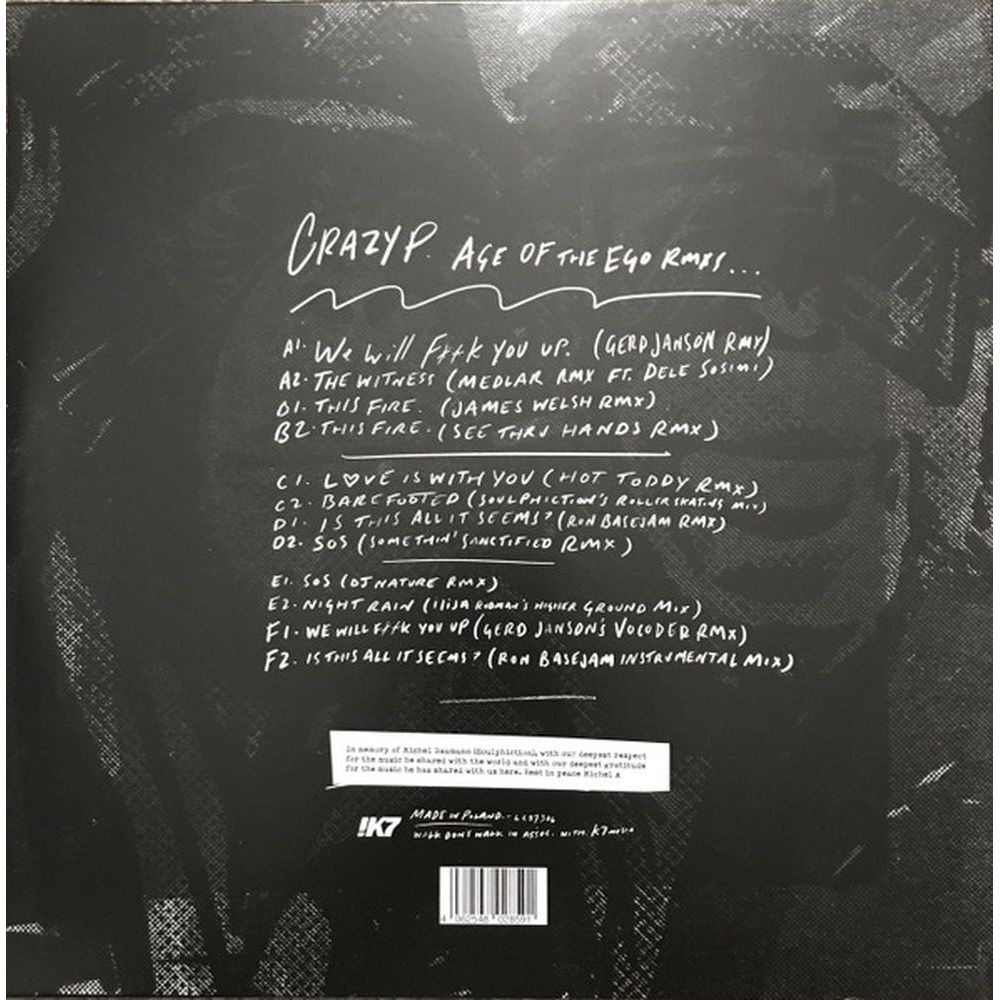 CRAZYP. AGE OF THE EGO RMXS...
A1. We Will F**K YOU UP. (GERD JANSON RMX)
A2. THE WITNESS (MEDLAR RMX FT. DELE SOSIMI)
B1. THIS FIRE. (JAMES WELSH RMX)
B2. THIS FIRE. (SEE THRU HANDS RMX)
C1. L♡VE IS WITH YOU (HOT TODDY RMX)
C2. BAREFOOTED (SOULPHICTION'S ROLLERSKATING MIX)
D1. IS THIS ALL IT SEEMS? (RON BASEJAM RMX)
D2. SOS (SOMETHIN' SANCTIFIED RMX)
E1. SOS (DJ NATURE RMX)
E2. NIGHT RAIN (ILIJA RUDMAN'S HIGHER GROUND MIX)
F1. WE WILL F**K YOU UP (GERD JANSON'S VOCODER RMX)
F2. IS THIS ALL IT SEEMS? (RON BASEJAM INSTRUMENTAL MIX)
In memory of Michel Baumann (Soulphiction), with our deepest respect
for the music he shared with the world and with our deepest gratitude
for the music he has shared with us here. Rest in peace Michel x
!K7
MADE IN POLAND. - LC07306
WALK DONT WALK IN ASSOC. WITH. K7 MUSIC
4 062548 028591